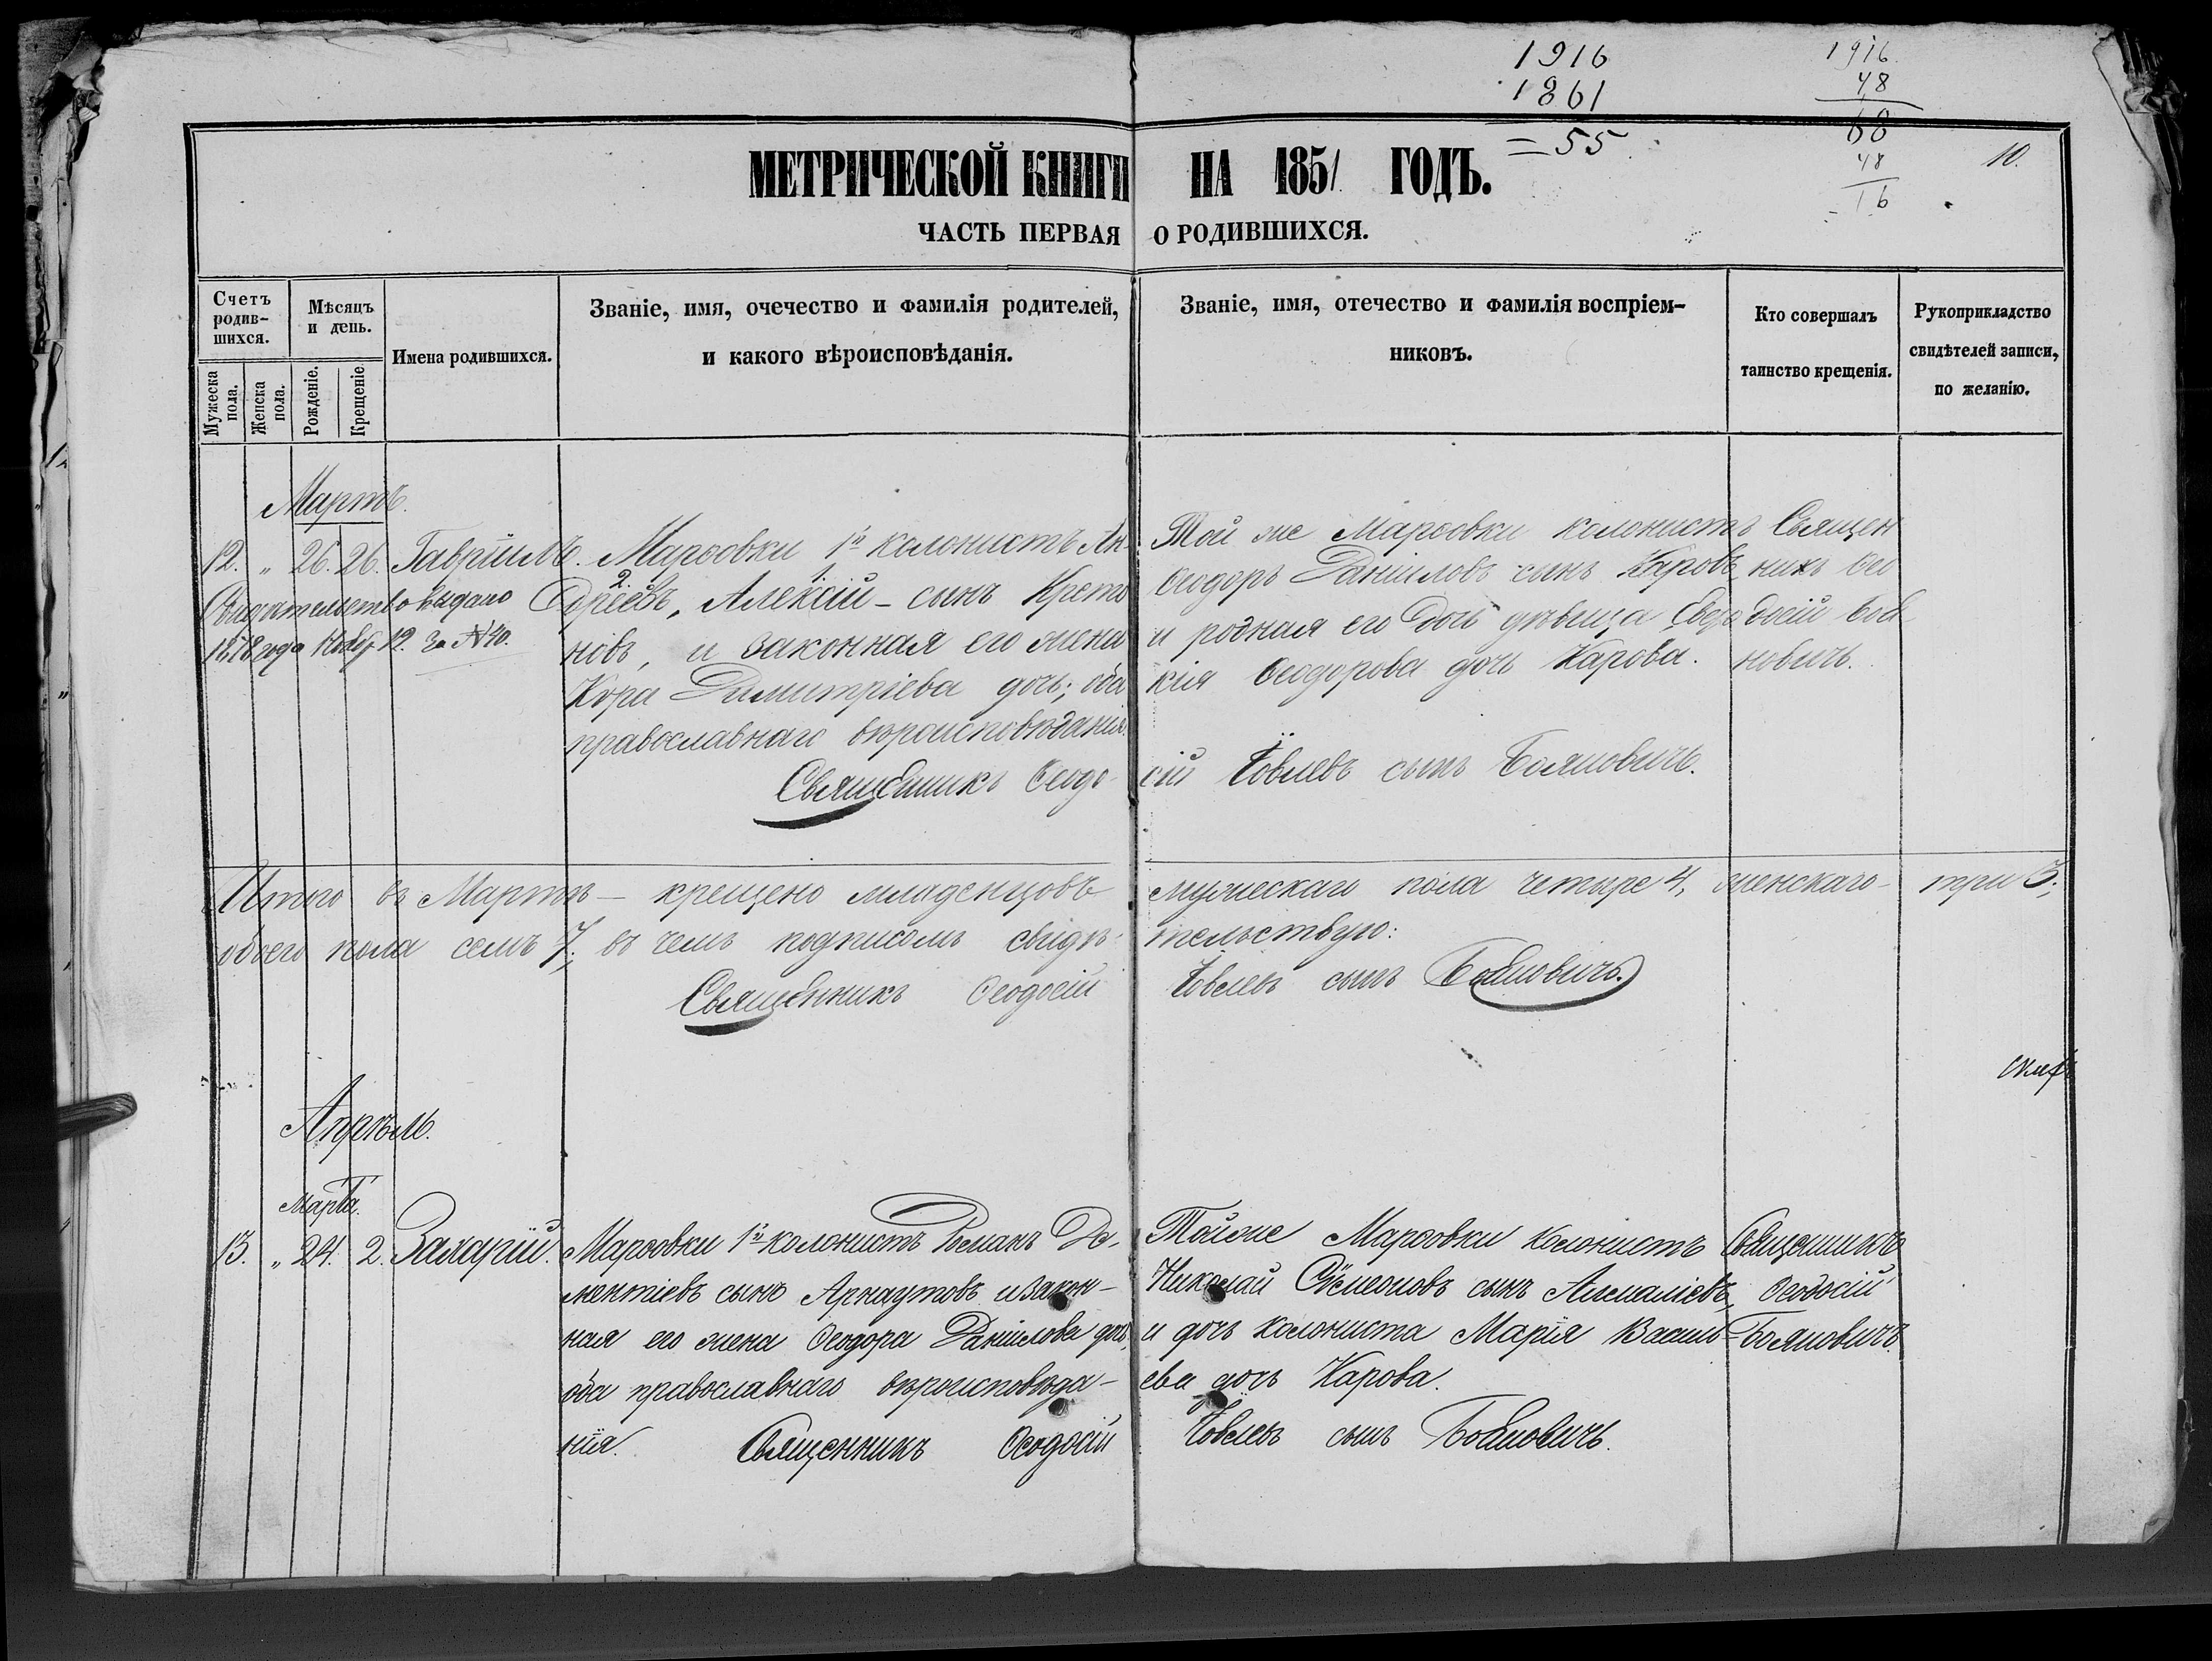 1916
1861
= 55
1916
48
68
48
16
10.
МЕТРИЧЕСКОЙ КНИГИ НА 1851 ГОДЪ.
ЧАСТЬ ПЕРВАЯ О РОДИВШИХСЯ.
Счетъ родив-шихся.
Мужеска пола.
Женска пола.
Мѣсяцъ и день.
Рожденіе.
Крещеніе.
Имена родившихся.
Званіе, имя, очечество и фамилія родителей,
и какого вѣроисповѣданія.
Званіе, имя, отечество и фамилія воспріем-
никовъ.
Кто совершалъ
таинство крещенія.
Рукоприкладство
свидѣтелей записи,
по желанію.
Мартъ.
12. „ 26. 26. Гавріилъ.
Свидѣтельство выдано
1878 года Нояб. 12. За № 40.
Марѳовки 1й колонистъ Ан-
2. 1.
дреевъ, Алексій - сынъ Крето
новъ, и законная его жена
Кора Димитріева дочь; оба
православнаго вѣроисповѣданія.
Священникъ Ѳеодо-
Той же Марѳовки колонистъ
Ѳеодоръ Даніиловъ сынъ Каровъ
и родная его дочь дѣвица Евдо
кія Ѳеодорова дочь Карова.
сій Іовлевъ сынъ Бояновичь.
Священ
никъ Ѳео
досій Боя
новичь.
Итого въ Мартѣ - крещено младенцовъ мужескаго пола четыре 4, женскаго - три 3;
обоего пола семъ 7; въ чемъ подписомъ свидѣ-тельствую:
Священникъ Ѳеодосій Іовлевъ сынъ Бояновичъ.
Апрѣль.
Марта.
13. „ 24. 2. Захарій.
Марѳовки 1й колонистъ Романъ Де-
ментіевъ сынъ Арнаутовъ и закон-
ная его жена Ѳеодора Даніилова дочь,
оба православнаго вѣроисповѣда-
нія. Священникъ Ѳеодосій
Тойже Марѳовки колонистъ
Николай Сѵмеоновъ сынъ Алмаліевъ,
и дочь колониста Марія Василь-
ева дочь Карова.
Іовлевъ сынъ Бояновичъ.
Священникъ
Ѳеодосій
Бояновичъ.